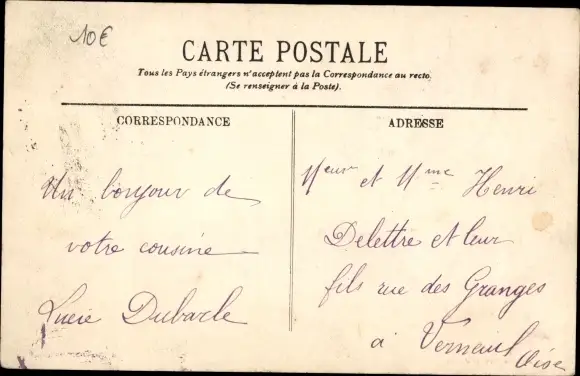 10€
CARTE POSTALE
Tous les Pays étrangers n'acceptent pas la Correspondance au recto.
(Se renseigner à la Poste).
CORRESPONDANCE
Un bonjour de
votre cousine
Lucie Dubacle
ADRESSE
Meur et Mme Henri
Delettre et leur
fils rue des Granges
a Verneuil
Oise